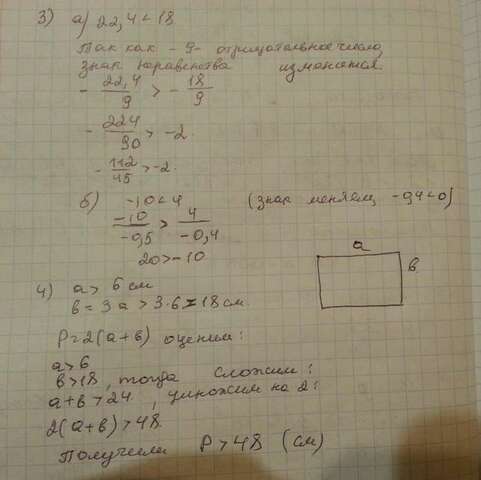 3) а) 22,4 < 18
Так как -9- отрицательное число,
знак неравенства изменится.
- 22,4/9 > - 18/9
- 224/90 > -2
- 112/45 > -2.
б) -10 < 4 (знак меняем, -0,4<0)
-10/-0,5 > 4/-0,4
20 > -10
4) а > 6 см
в = 3а > 3·6 = 18 см
а
в
P = 2(а+в) оценим:
а > 6
в > 18, тогда сложим:
а+в > 24, умножим на 2:
2(а+в) > 48.
Получили P > 48 (см)